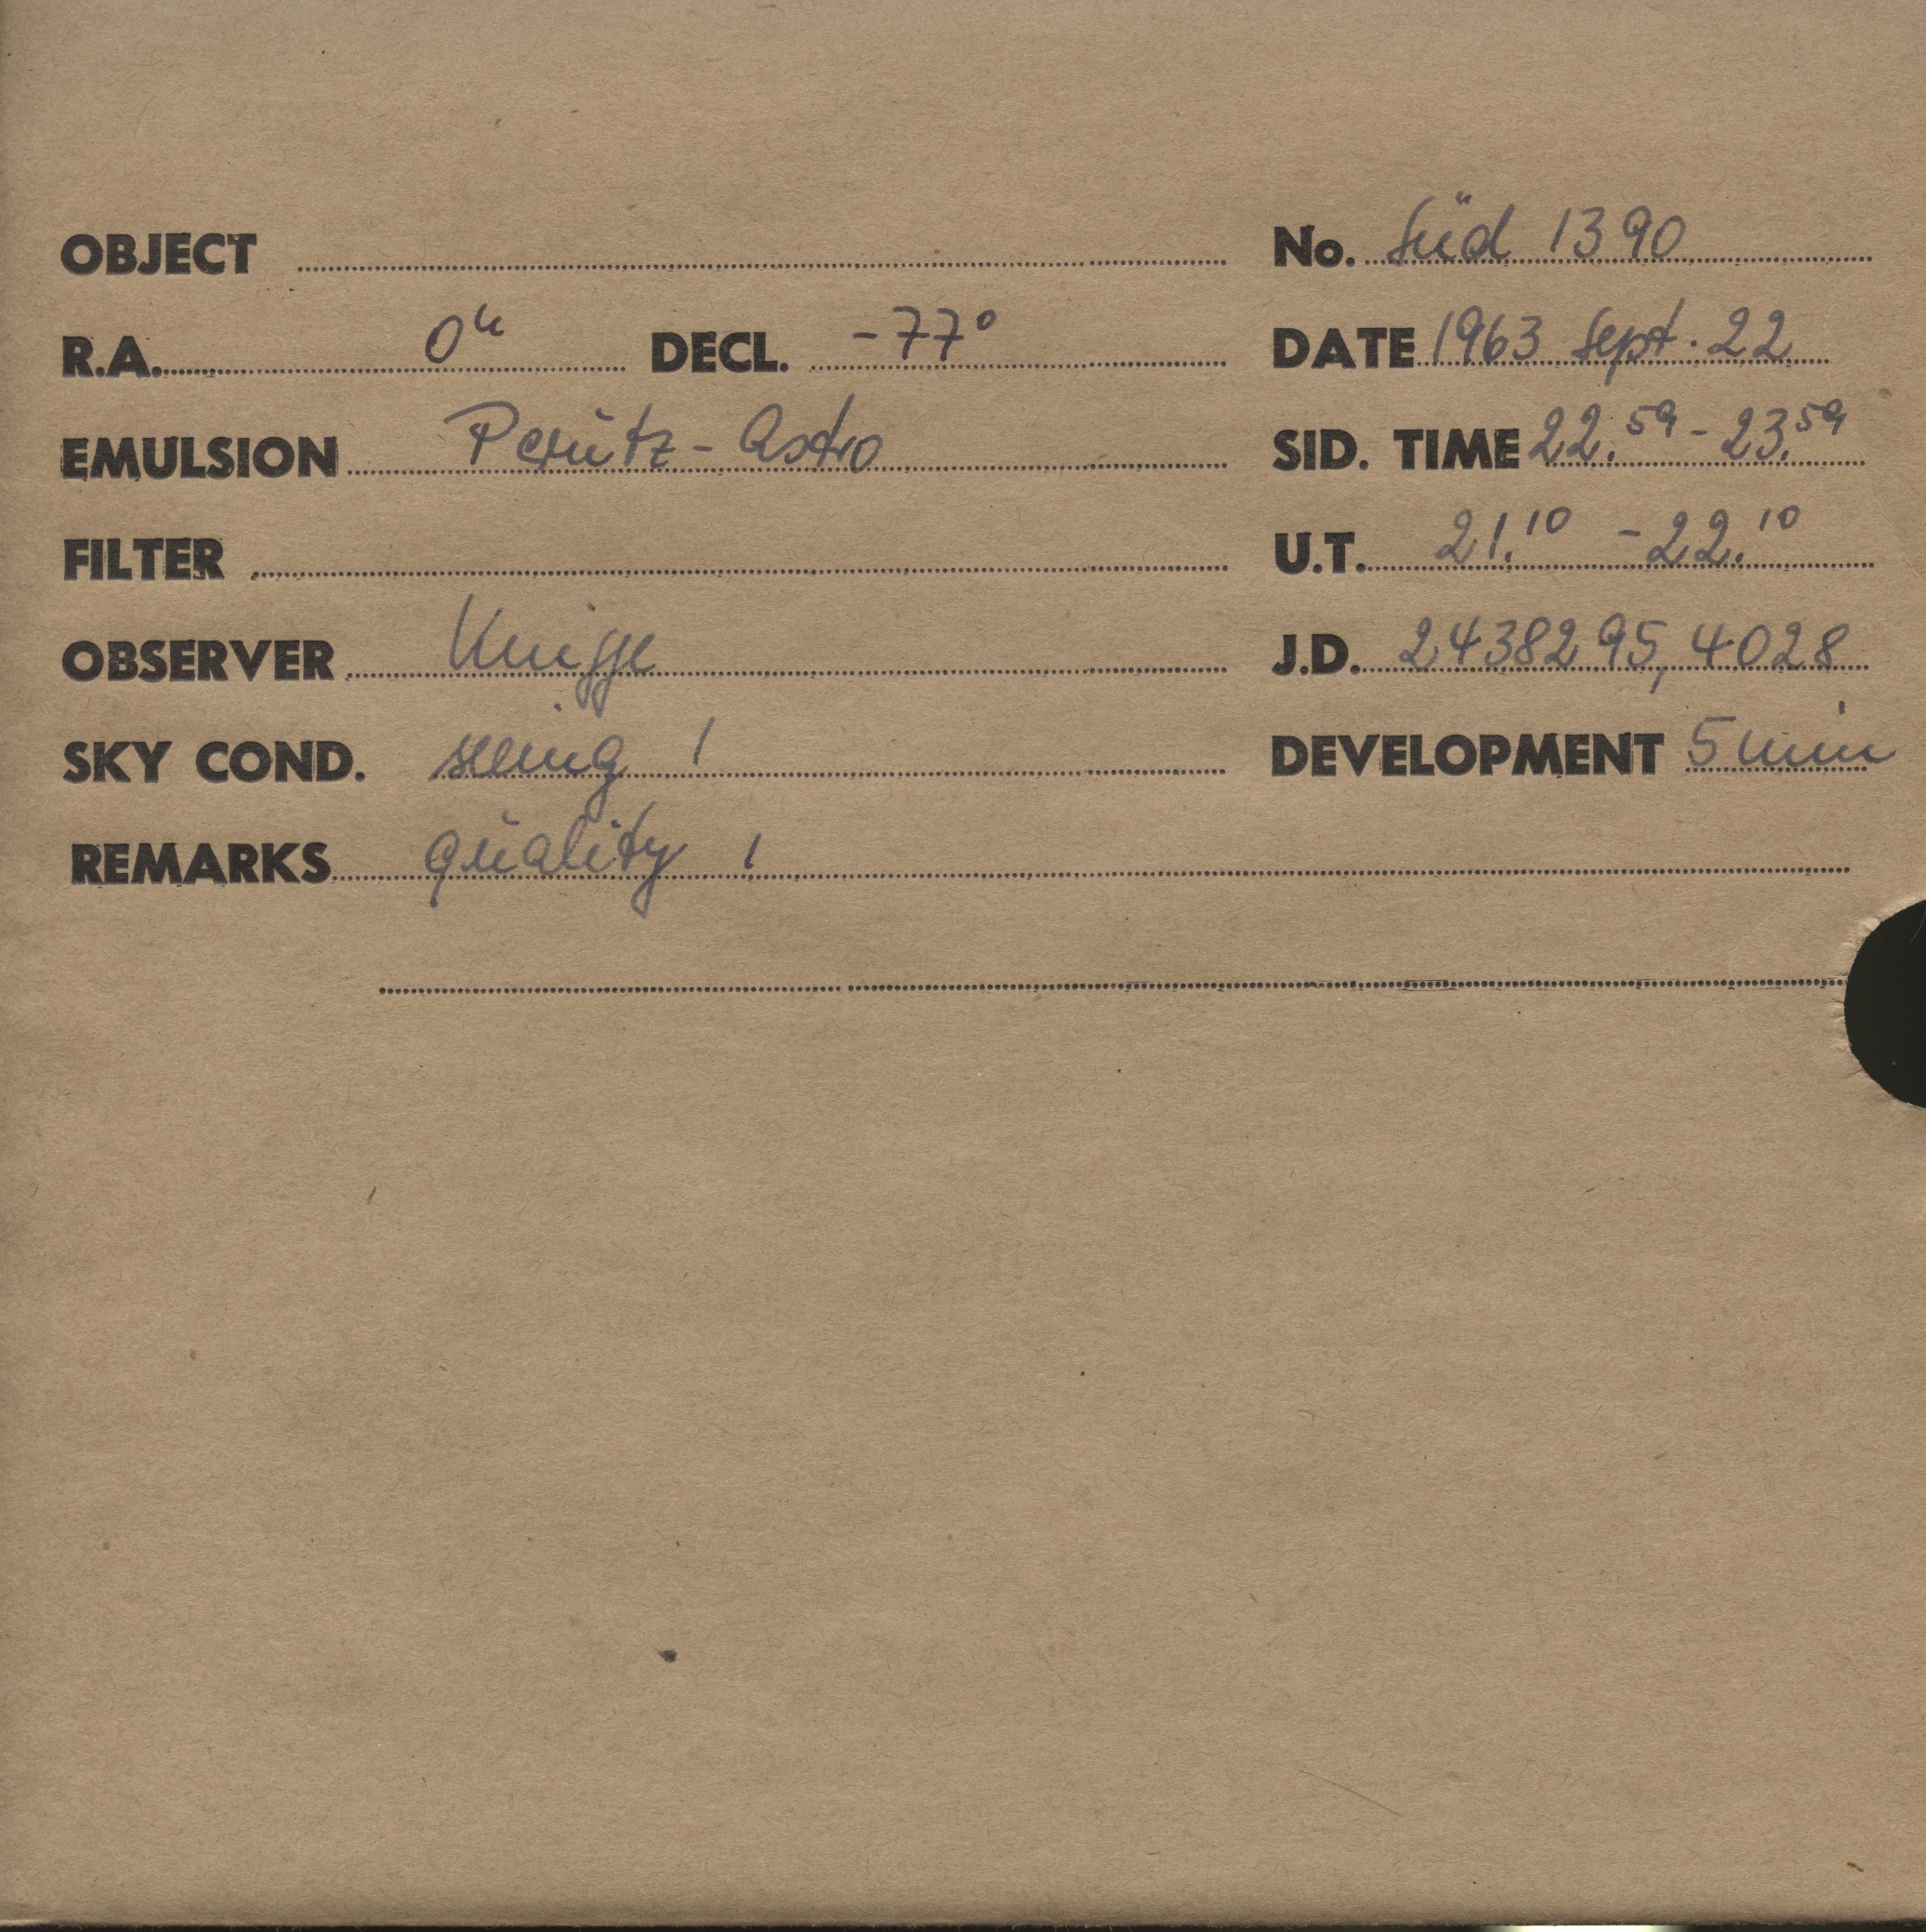 OBJECT No. Süd 1390
R.A. 0h DECL. -77° DATE 1963 Sept. 22
EMULSION Perutz-Astro SID. TIME 22.59 - 23.59
FILTER U.T. 21.10 - 22.10
OBSERVER Knigge J.D. 2438295,4028
SKY COND. seeing 1 DEVELOPMENT 5 min
REMARKS quality 1